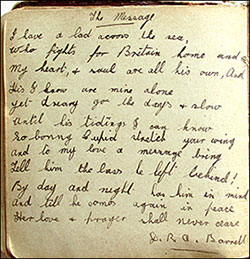 The Message
I have a lad across the sea,
Who fights for Britain home and
My heart, & soul are all his own, And
His I know are mine alone
Yet dreary go the days & slow
Until his tidings I can know
So bonny Cupid stretch your wing
and to my love a message bring
Tell him the lass he left behind!
By day and night has him in mind
and till he comes again in peace
Her love & prayer shall never cease
D. R. A. Barrett